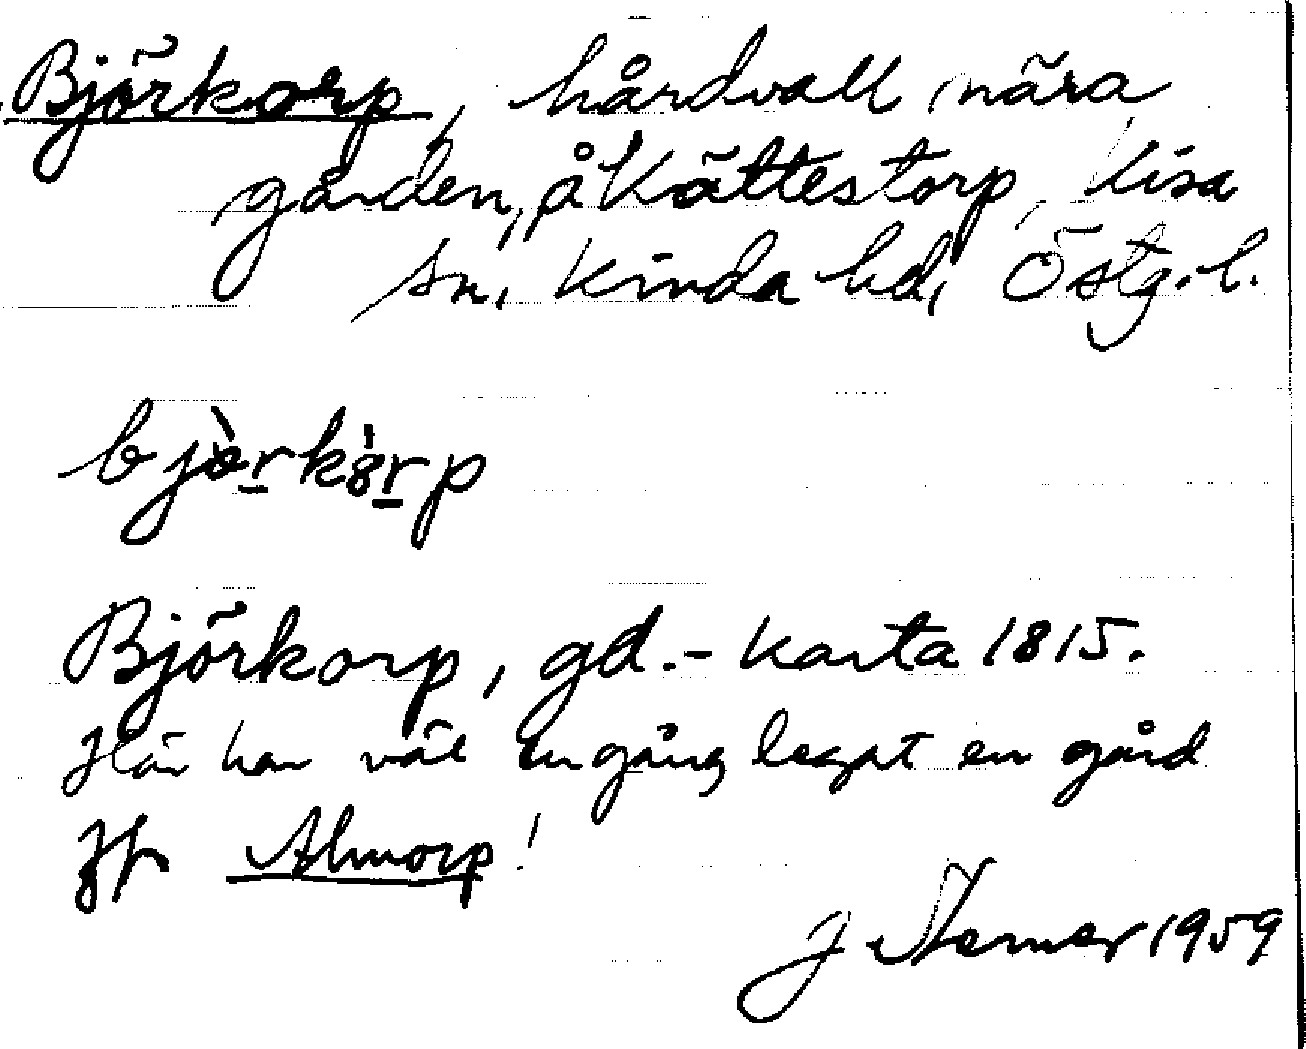 Björkorp, hårdvall nära
gården, å Kättestorp, Kisa
sn, Kinda hd, Östg. l.
bjòrkòrp
Björkorp, gd. - Karta 1815.
Här har väl en gång legat en gård
Jfr Almorp!
J 1959